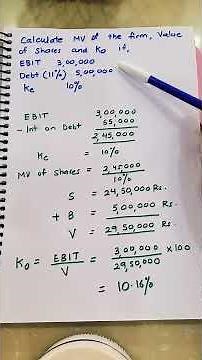 Calculate MV of the firm, Value
of Shares and Ko if,
EBIT 3,00,000
Debt (11%) 5,00,000
Ke 10%
EBIT 3,00,000
- Int on Debt 55,000
2,45,000
Ke = 10%
MV of Shares = 2,45,000
10%
S = 24,50,000 Rs.
+ B = 5,00,000 Rs
V = 29,50,000 Rs.
Ko = EBIT = 3,00,000 × 100
V 29,50,000
= 10.16%